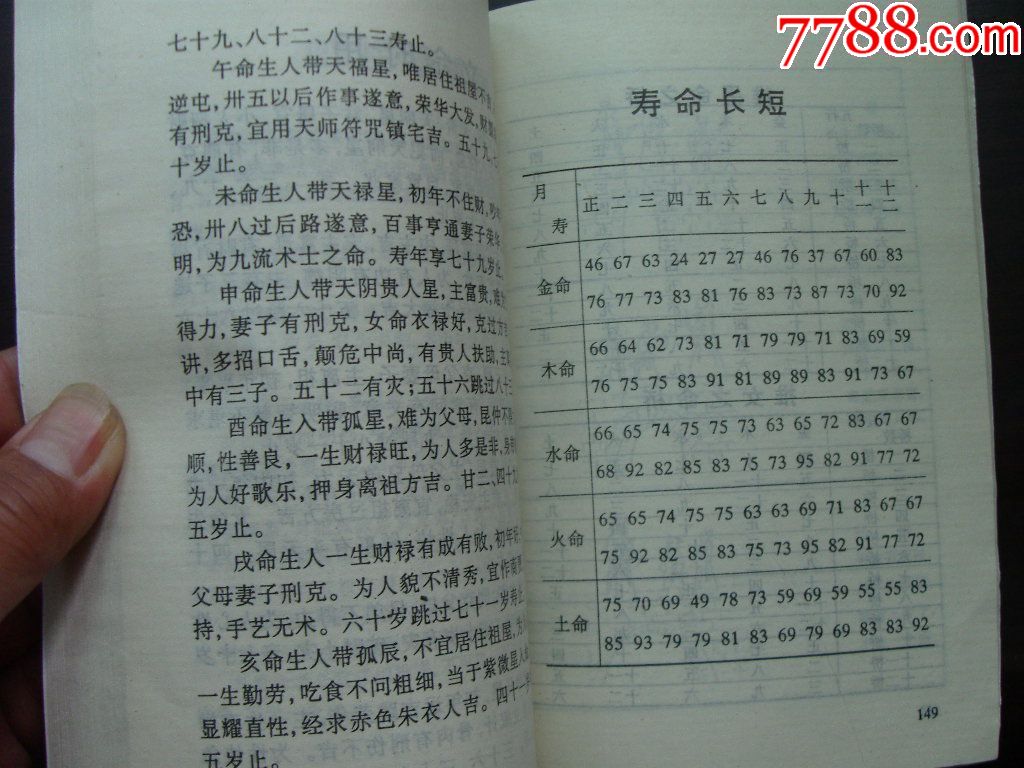 七十九、八十二、八十三寿止。
午命生人带天福星，唯居住祖屋不
逆屯，卅五以后作事遂意，荣华大发，财
有刑克，宜用天师符咒镇宅吉。五十九、七
十岁止。
未命生人带天禄星，初年不住财，
恐，卅八过后路遂意，百事亨通妻子荣华
明，为九流术士之命。寿年享七十九岁止。
申命生人带天阴贵人星，主富贵，难
得力，妻子有刑克，女命衣禄好，克过方
讲，多招口舌，颠危中尚，有贵人扶助，主
中有三子。五十二有灾；五十六跳过八十三
酉命生入带孤星，难为父母，昆仲不
顺，性善良，一生财禄旺，为人多是非，身
为人好歌乐，押身离祖方吉。甘二、四十九
五岁止。
戌命生人一生财禄有成有败，初年
父母妻子刑克。为人貌不清秀，宜作商
持，手艺无术。六十岁跳过七十一岁寿止
亥命生人带孤辰，不宜居住祖屋，为
一生勤劳，吃食不问粗细，当于紫微星人
显耀直性，经求赤色朱衣人吉。四十一
五岁止。
7788.com
寿命长短
月 正 二 三 四 五 六 七 八 九 十 十一 十二
寿
46 67 63 24 27 27 46 76 37 67 60 83
金命
76 77 73 83 81 76 83 73 87 73 70 92
66 64 62 73 81 71 79 79 71 83 69 59
木命
76 75 75 83 91 81 89 89 83 91 73 67
66 65 74 75 75 73 63 75 74 83 67 67
水命
68 92 82 85 83 75 73 95 82 91 77 72
65 65 74 75 75 63 63 69 71 83 67 67
火命
75 92 82 85 83 75 73 95 82 91 77 72
75 70 69 49 78 73 59 69 59 55 55 83
土命
85 93 79 79 81 83 69 79 69 83 83 92
149